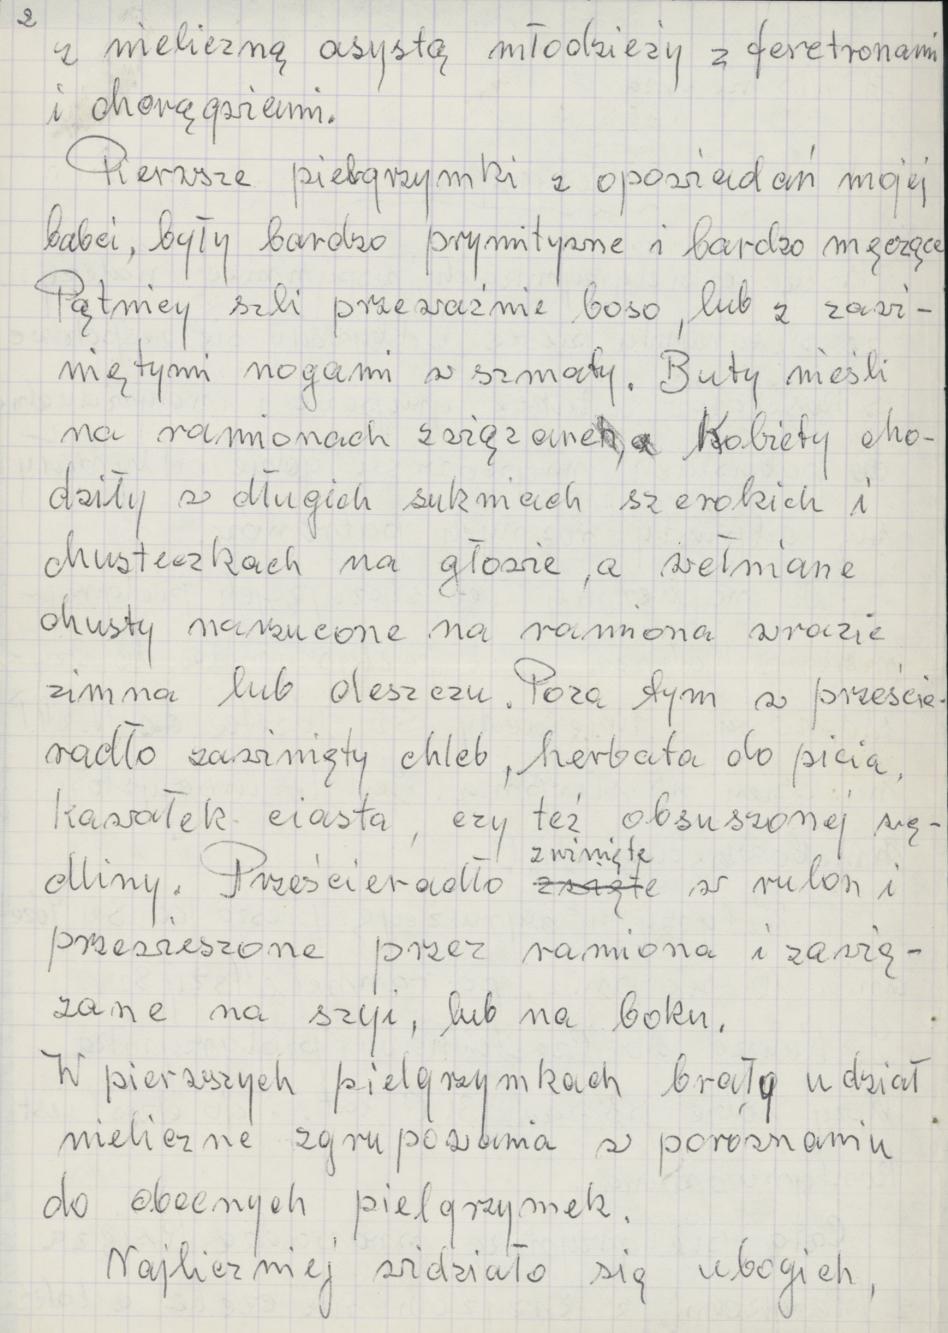 2
z nieliczną asystą młodzieży z feretronami
i chorągwiami.
Pierwsze pielgrzymki z opowiadań mojej
babci, były bardzo prymitywne i bardzo męczące
Pątnicy szli przeważnie boso, lub z zawi-
niętymi nogami w szmaty. Buty nieśli
na ramionach związane, a Kobiety cho-
dziły w długich sukniach szerokich i
chusteczkach na głowie, a wełniane
chusty narzucone na ramiona wrazie
zimna lub deszczu. Poza tym w przeście-
radło zawinięty chleb, herbata do picia,
kawałek ciasta, czy też obsuszonej wę-
dliny. Prześcieradło zwinięte w rulon i
przewieszone przez ramiona i zawią-
zane na szyi, lub na boku.
W pierwszych pielgrzymkach brały udział
nieliczne zgrupowania w porównaniu
do obecnych pielgrzymek.
Najliczniej widziało się ubogich,